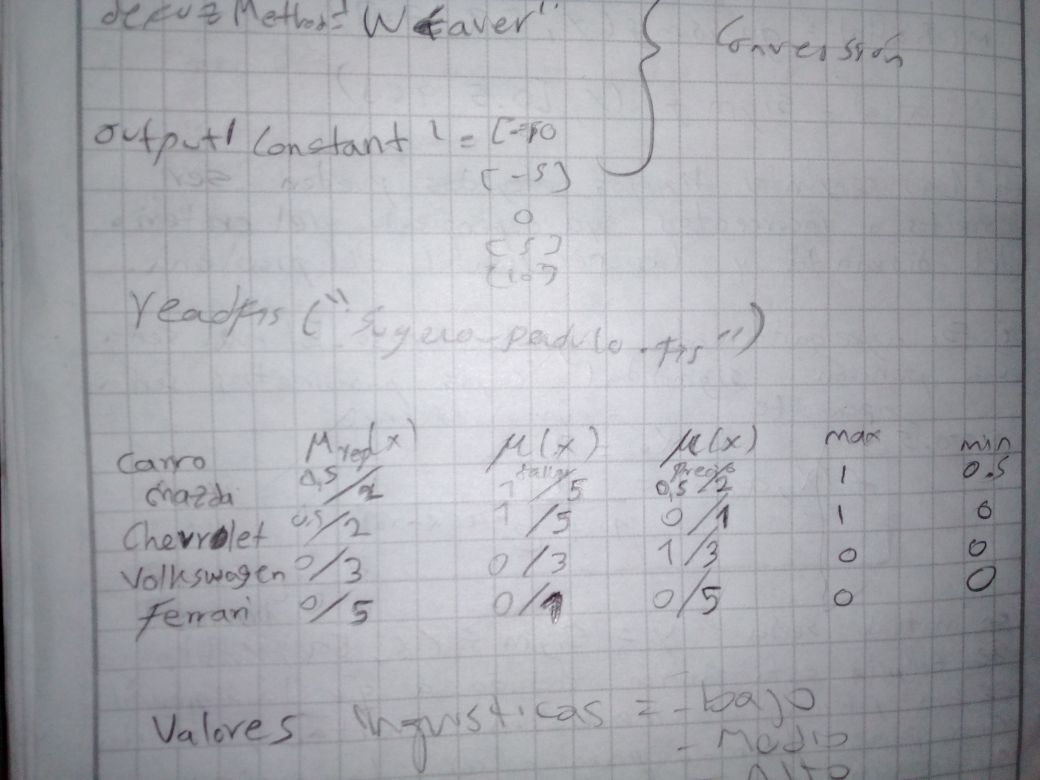 Method= "Weaver"
Conversión
output 'Constant' = [-10
[-5]
0
[5]
[10]
readfis ("      .fis")
Carro μred(x) μ(x) μ(x) max min
taller Precio
mazda 0,5/2 1/5 0,5/2 1 0.5
Chevrolet 0,5/2 1/5 0/1 1 0
Volkswagen 0/3 0/3 1/3 0 0
Ferrari 0/5 0/1 0/5 0 0
Valores linguisticas = - bajo
- Medio
Alto